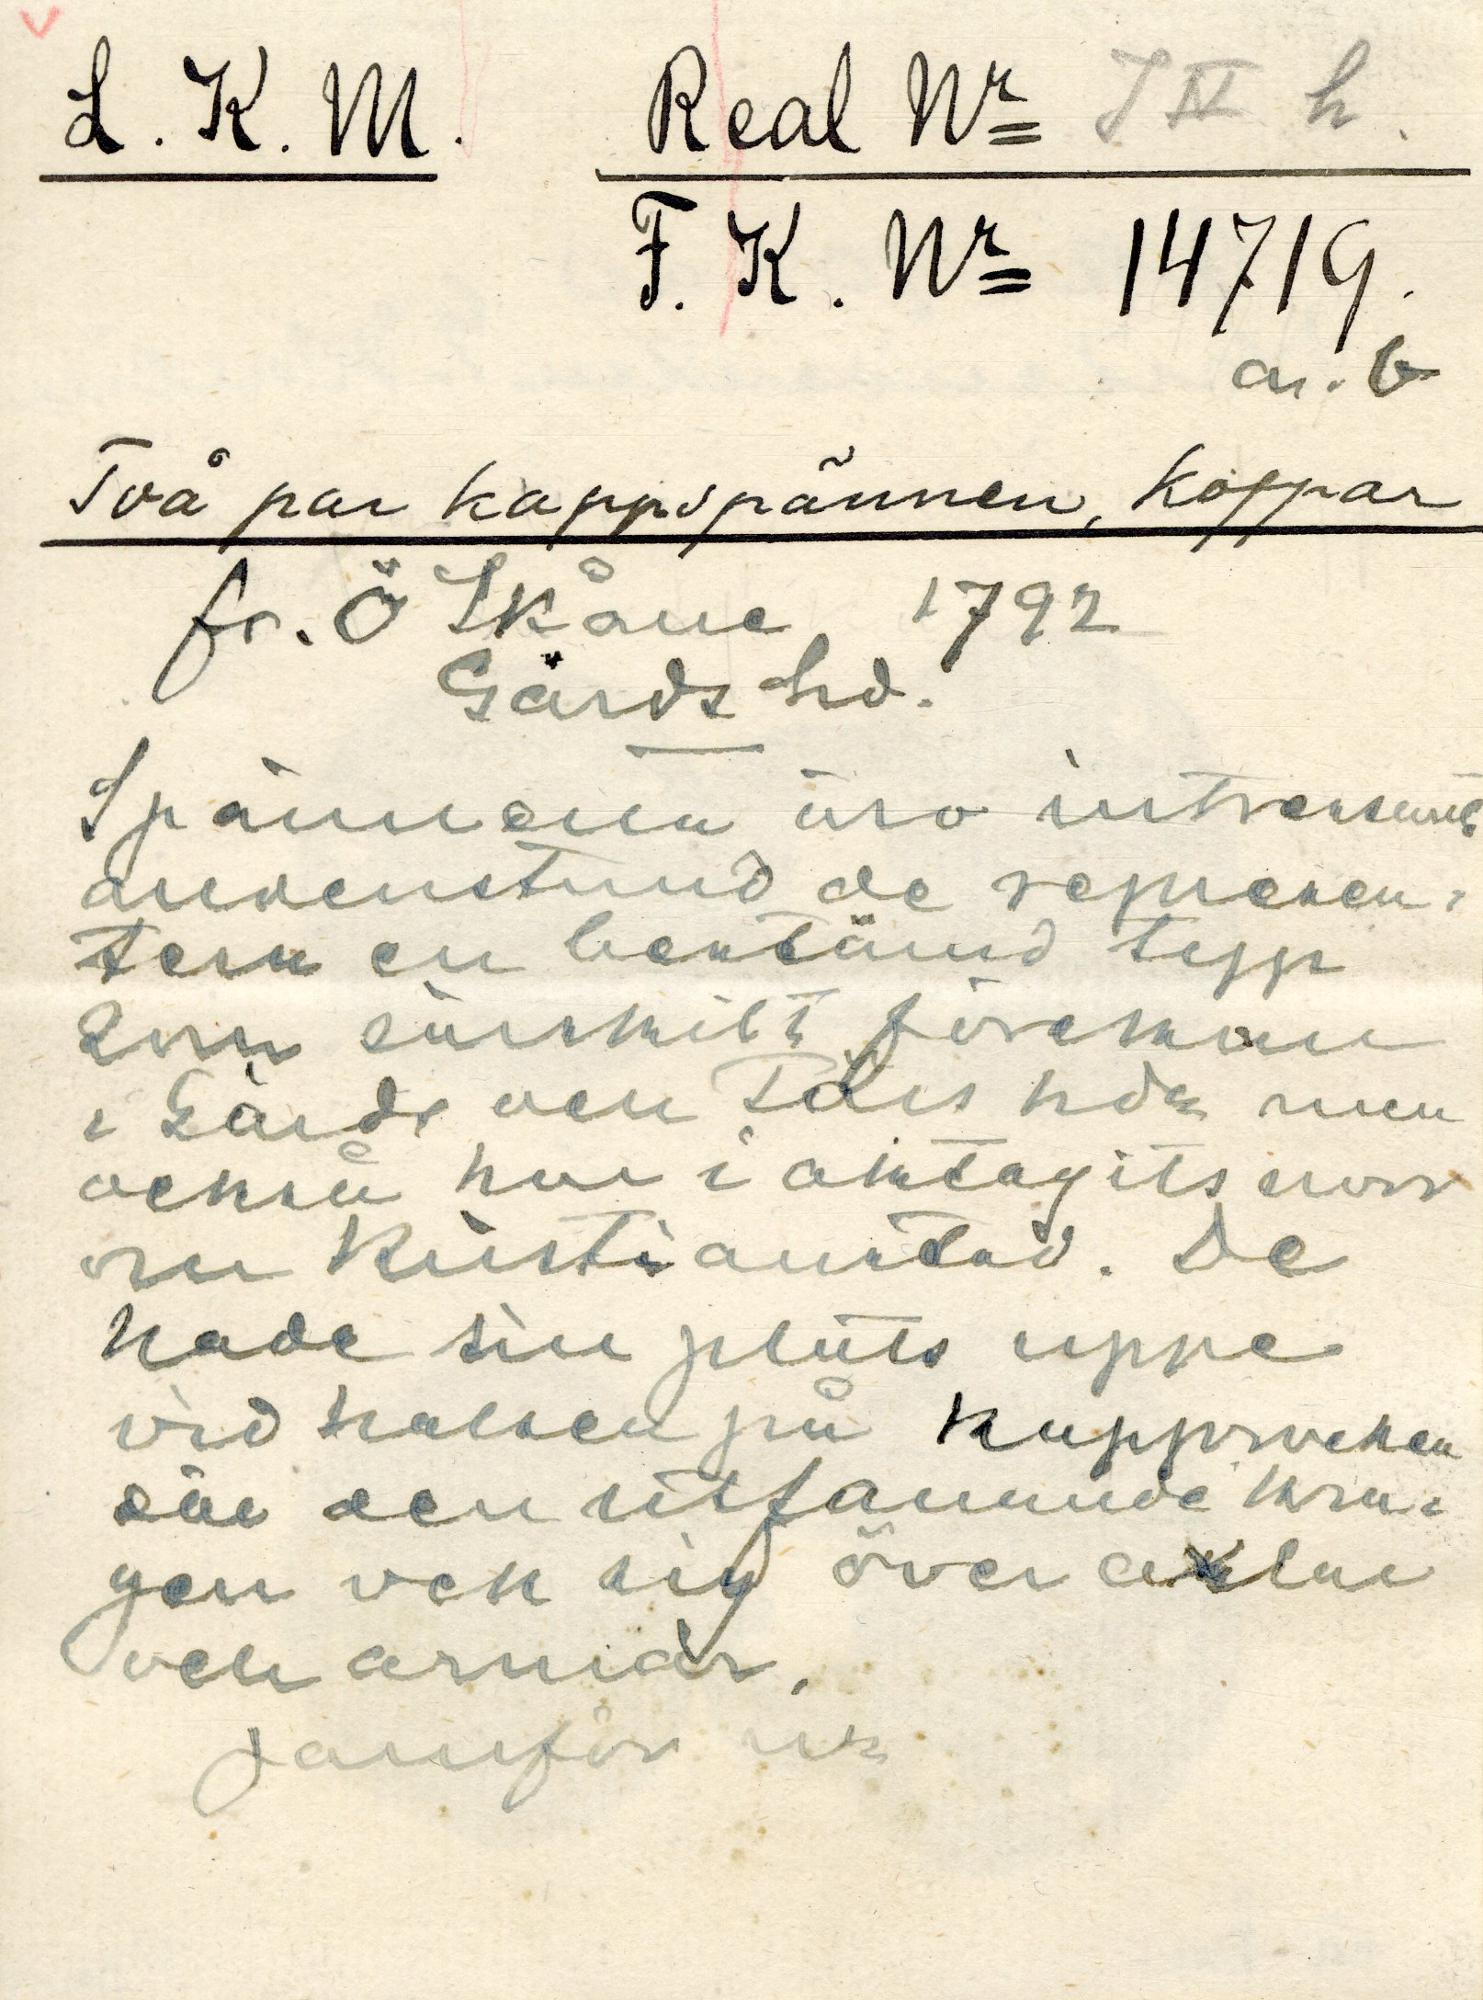 L. K. M. Real Nr I IV h.
F. K. Nr 14719.
a. b
Två par kappspännen, koppar
fr. Ö Skåne, 1792
Gärds hd.
Spännena äro intressanta
andenstund de represen-
tera en bestämd typ
som särskilt förekom
i Gärds och hdr men
också har iakttagits norr
om Kristianstad. De
hade sin plats uppe
vid halsen på kapprocken
där den utfallande kra-
gen vek sig över axlar
och armar.
Jämför nr